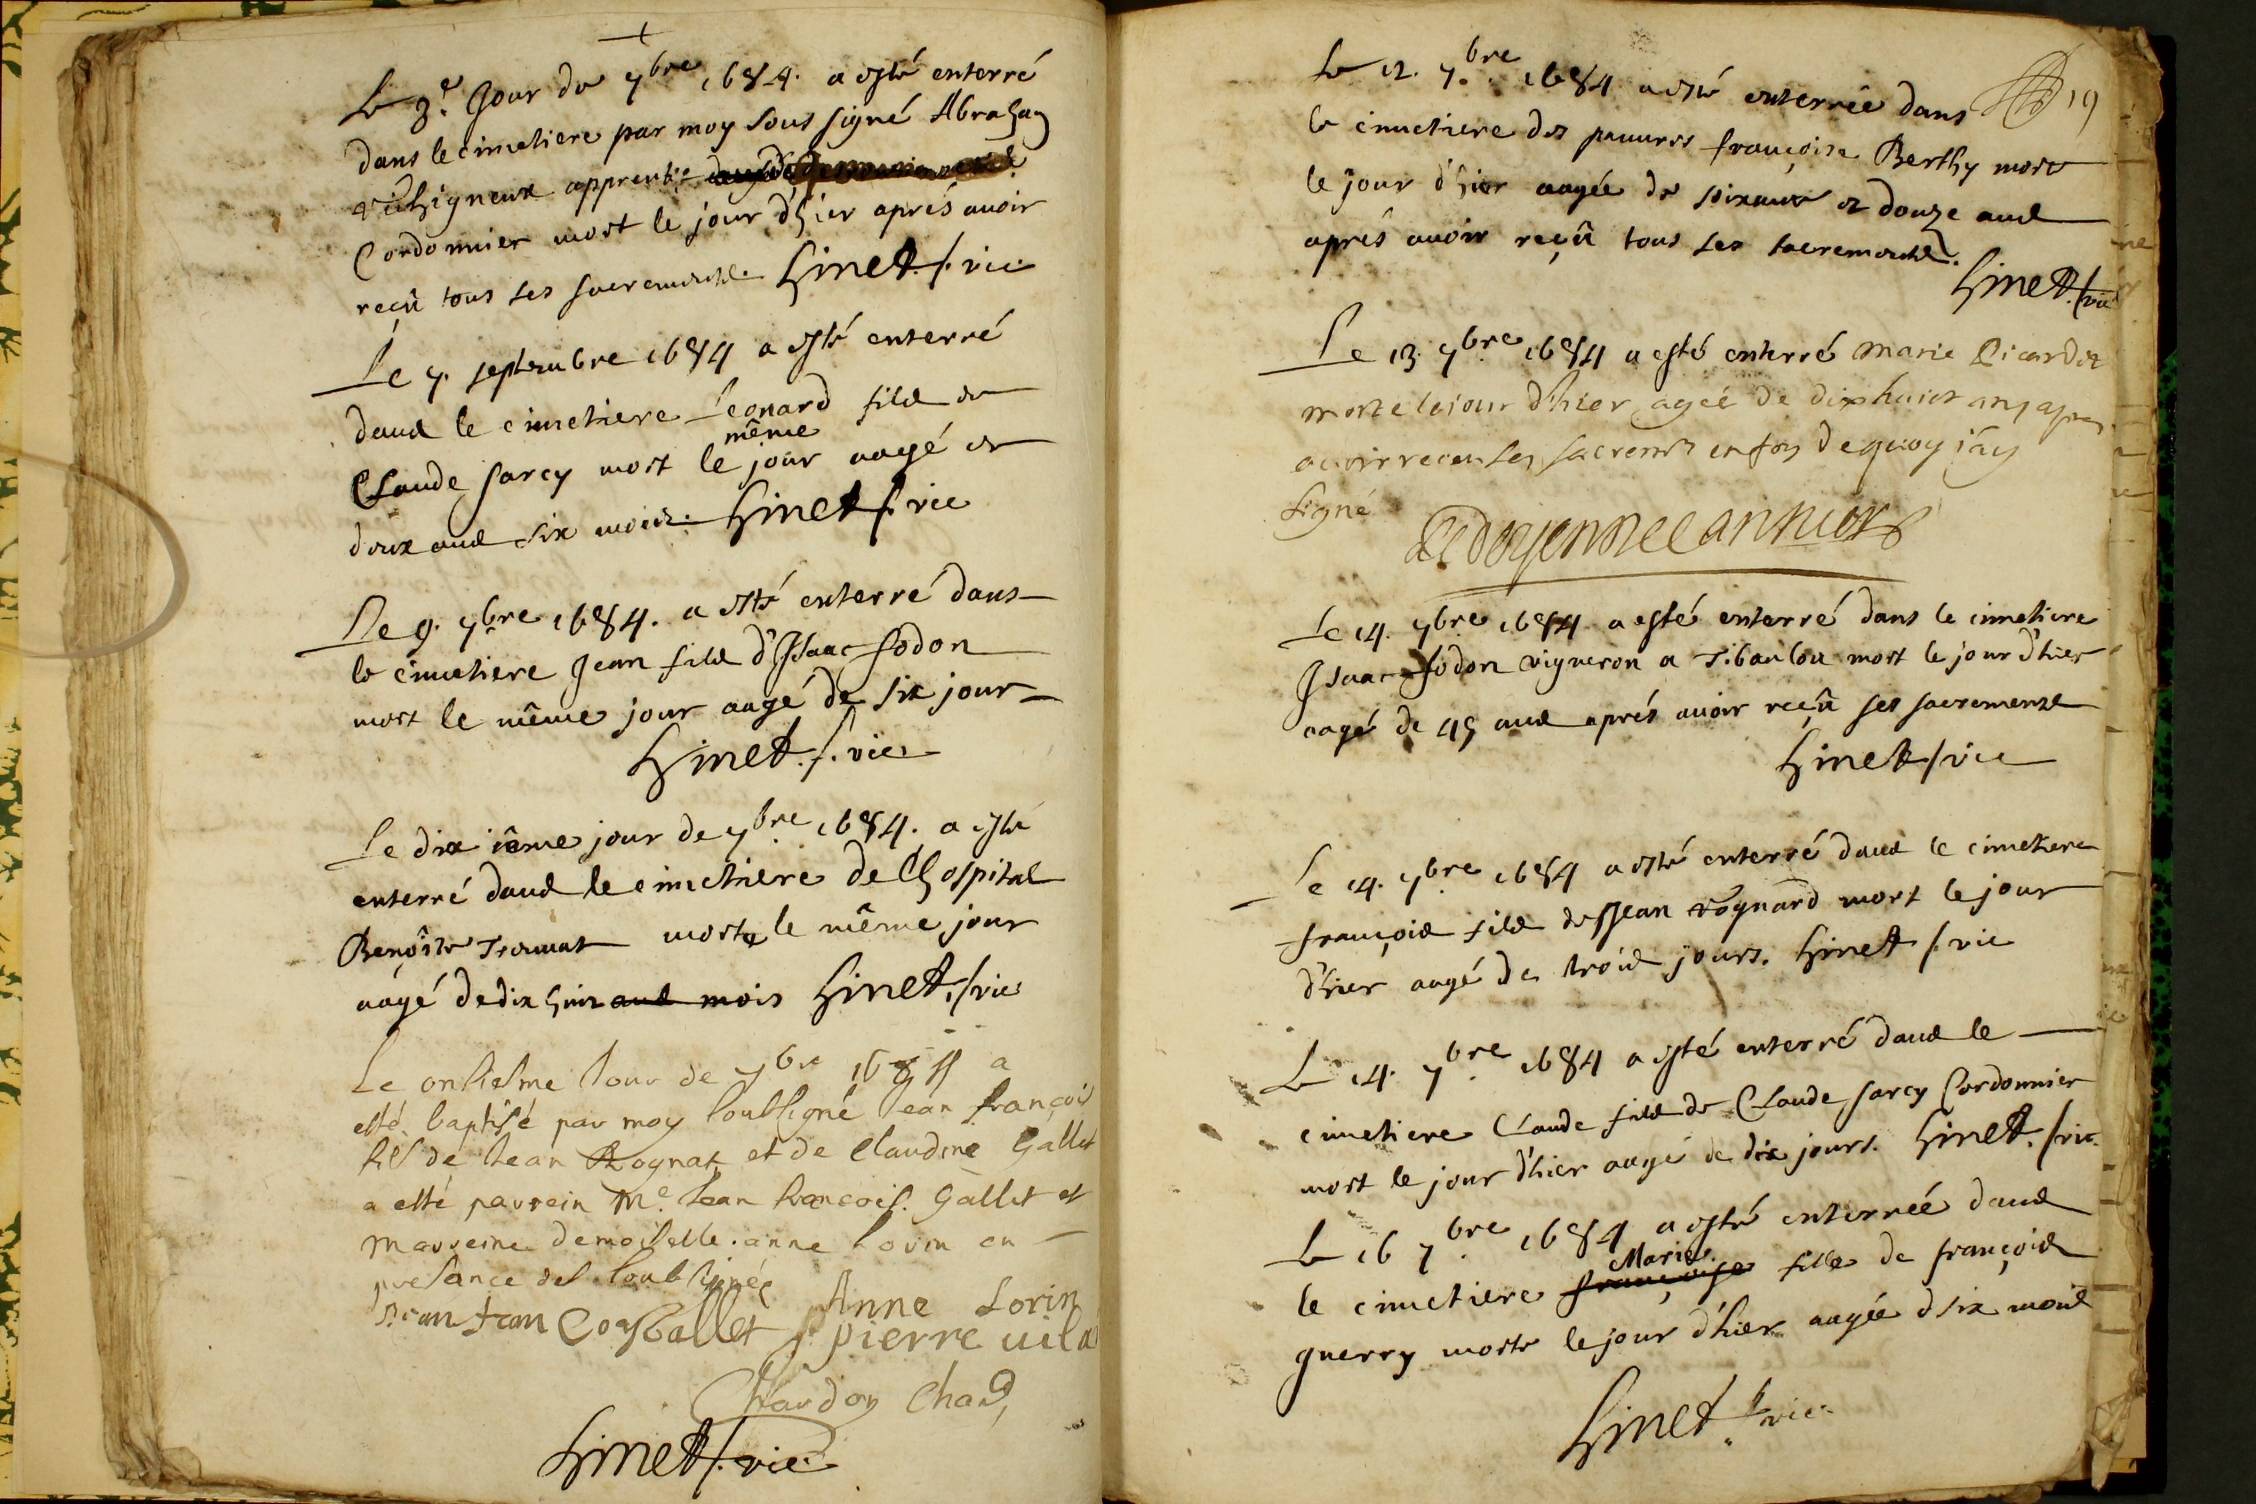 Le 3e Jour de 7bre 1684. a esté enterré
dans le cimetiere par moy sous signé Abraham
apprentis
Cordonnier mort le jour d'hier aprés auoir
reçû tous ses sacrements Hinet s. vic.
Le 7. septembre 1684 a esté enterré
dans le cimetiere Leonard fils de
Claude sarcy mort le même jour aagé de
deux ans six mois. Hinet s. vic
Le 9. 7bre 1684. a esté enterré dans
le cimetiere Jean fils d'Isaac fodon
mort le même jour aagé de six jour
Hinet. s. vic.
Le dixiême jour de 7bre 1684. a esté
enterré dans le cimetiere de l'hospital
Benoîte morte le même jour
aagé de dix huit ans mois Hinet. s. vic
Le onsiesme Jour de 7bre 1684 a
esté baptisé par moy soubsigné Jean françois
fils de Jean Rognat et de Claudine Gallet
a esté parrein Me. Jean francois. Gallet et
marreine demoiselle. anne Lorin en
presance des soubsignés
Jean Gallet Anne Lorin
pierre
Chardon
Hinet s. vic
19
Le 12. 7.bre 1684 a esté enterrée dans
le cimetiere des pauures françoise Berthy morte
le jour d'hier aagée de soixante et douze ans
aprés auoir reçû tous ses sacrements.
Hinet. s. vic
Le 13. 7bre 1684 a esté enterré marie Picardet
morte le jour d'hier agée de dix huict ans apres
auoir receu ses sacremts en foy de quoy j'ay
signé

Le 14. 7bre 1684 a esté enterré dans le cimetiere
Isaac fodon vigneron a mort le jour d'hier
aagé de 45 ans aprés auoir reçû ses sacrements
Hinet s vic
Le 14. 7bre 1684 a esté enterré dans le cimetiere
françois fils de Jean rognard mort le jour
d'hier aagé de trois jours. Hinet s. vic
Le 14. 7bre 1684 a esté enterré dans le
cimetiere Claude fils de Claude sarcy Cordonnier
mort le jour d'hier aagé de dix jours. Hinet. s. vic.
Le 16 7bre 1684 a esté enterrée dans
le cimetiere françoise Marie fille de françois
guerry morte le jour d'hier aagée d six mois
Hinet. s. vic.